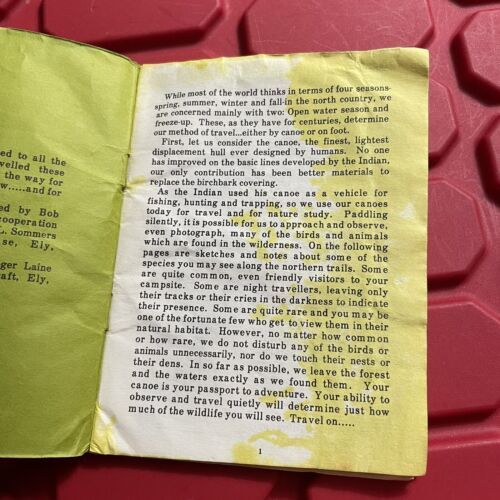 ed to all the
velled these
the way for
w.....and for
ed by Bob
cooperation
L. Sommers
se, Ely,
ger Laine
aft, Ely,
While most of the world thinks in terms of four seasons-
spring, summer, winter and fall-in the north country, we
are concerned mainly with two: Open water season and
freeze-up. These, as they have for centuries, determine
our method of travel...either by canoe or on foot.
First, let us consider the canoe, the finest, lightest
displacement hull ever designed by humans. No one
has improved on the basic lines developed by the Indian,
our only contribution has been better materials to
replace the birchbark covering.
As the Indian used his canoe as a vehicle for
fishing, hunting and trapping, so we use our canoes
today for travel and for nature study. Paddling
silently, it is possible for us to approach and observe,
even photograph, many of the birds and animals
which are found in the wilderness. On the following
pages are sketches and notes about some of the
species you may see along the northern trails. Some
are quite common, even friendly visitors to your
campsite. Some are night travellers, leaving only
their tracks or their cries in the darkness to indicate
their presence. Some are quite rare and you may be
one of the fortunate few who get to view them in their
natural habitat. However, no matter how common
or how rare, we do not disturb any of the birds or
animals unnecessarily, nor do we touch their nests or
their dens. In so far as possible, we leave the forest
and the waters exactly as we found them. Your
canoe is your passport to adventure. Your ability to
observe and travel quietly will determine just how
much of the wildlife you will see. Travel on.....
1